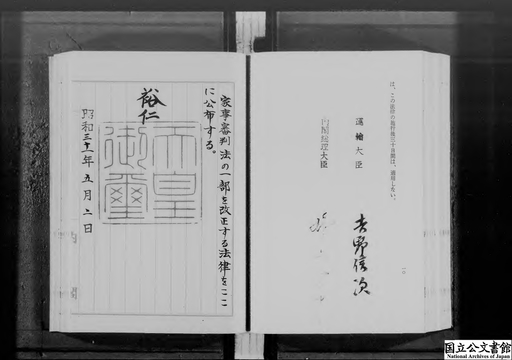 は、この法律の施行後三十日間は、適用しない。
運輸大臣
吉野信次
内閣総理大臣
家事審判法の一部を改正する法律をここ
に公布する。
裕仁
天皇
御璽
昭和三十一年五月二日
国立公文書館
National Archives of Japan